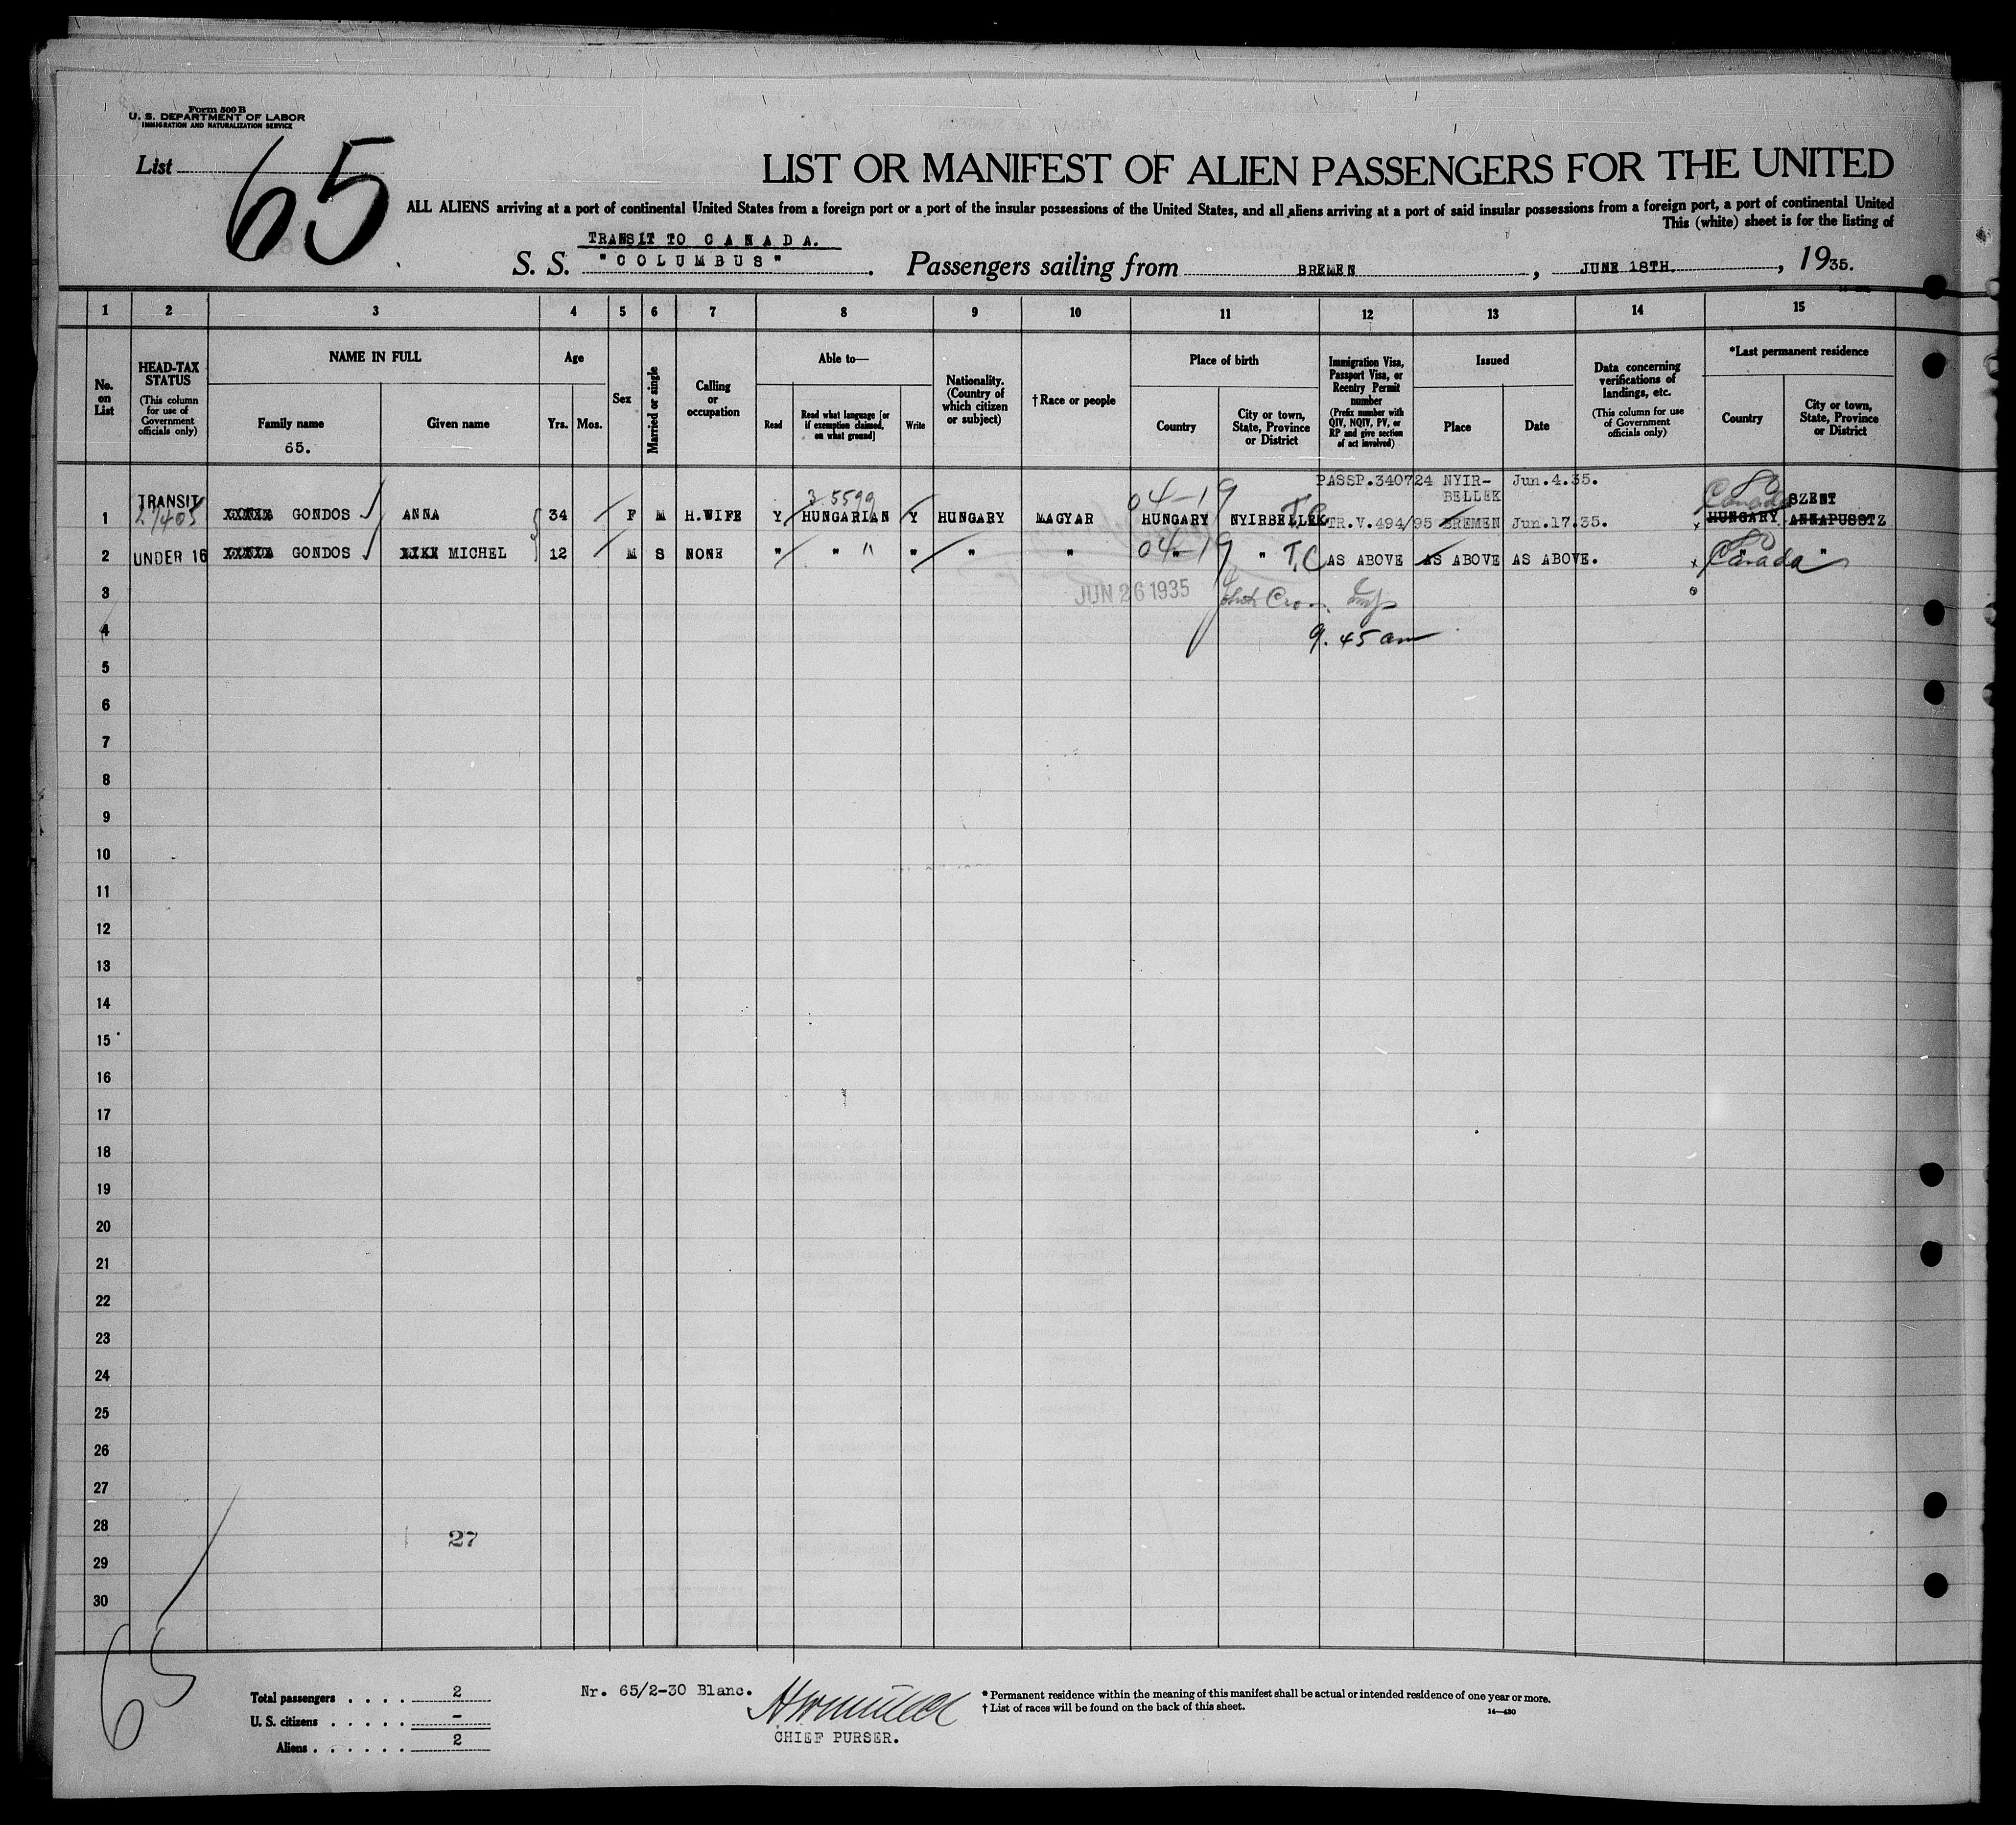 Form 500 B
U. S. DEPARTMENT OF LABOR
IMMIGRATION AND NATURALIZATION SERVICE
List 65
LIST OR MANIFEST OF ALIEN PASSENGERS FOR THE UNITED
ALL ALIENS arriving at a port of continental United States from a foreign port or a port of the insular possessions of the United States, and all aliens arriving at a port of said insular possessions from a foreign port, a port of continental United
This (white) sheet is for the listing of
TRANSIT TO CANADA.
S. S. "COLUMBUS". Passengers sailing from BREMEN, JUNE 18TH., 1935.
1 2 3 4 5 6 7 8 9 10 11 12 13 14 15
No. on List
HEAD-TAX STATUS
(This column for use of Government officials only)
NAME IN FULL
Family name
65.
Given name
Age
Yrs. Mos.
Sex
Married or single
Calling or occupation
Able to—
Read
Read what language [or if exemption claimed, on what ground]
Write
Nationality. (Country of which citizen or subject)
† Race or people
Place of birth
Country
City or town, State, Province or District
Immigration Visa, Passport Visa, or Reentry Permit number
(Prefix number with QIV, NQIV, PV, or RP and give section of act involved)
Issued
Place
Date
Data concerning verifications of landings, etc.
(This column for use of Government officials only)
*Last permanent residence
Country
City or town, State, Province or District
PASSP.340724 NYIR-BELLEK Jun.4.35.
TRANSIT 3 5599 04-19 T.C. Canada SZENT
1 GONDOS ANNA 34 F M H.WIFE Y HUNGARIAN Y HUNGARY MAGYAR HUNGARY NYIRBELLEK TR.V.494/95 BREMEN Jun.17.35. HUNGARY ANNAPUSSTZ
2 UNDER 16 GONDOS MICHEL 12 M S NONE " " " " " " 04-19 " " T.C AS ABOVE AS ABOVE AS ABOVE. Canada "
3 JUN 26 1935
4 9.45 am
5
6
7
8
9
10
11
12
13
14
15
16
17
18
19
20
21
22
23
24
25
26
27
28 27
29
30
65
Total passengers . . . . 2
U. S. citizens . . . . . -
Aliens . . . . . . 2
Nr. 65/2-30 Blanc.
CHIEF PURSER.
* Permanent residence within the meaning of this manifest shall be actual or intended residence of one year or more.
† List of races will be found on the back of this sheet.
14—430